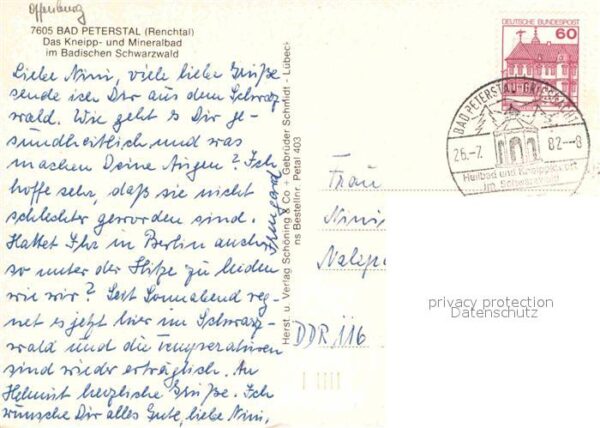 Offenburg
7605 BAD PETERSTAL (Renchtal)
Das Kneipp- und Mineralbad
im Badischen Schwarzwald
Liebe Nini, viele liebe Grüße
sende ich Dir aus dem Schwarz-
wald. Wie geht es Dir ge-
sundheitlich und was
machen Deine Augen? Ich
hoffe sehr, daß sie nicht
schlechter geworden sind.
Hattet Ihr in Berlin auch
so unter der Hitze zu leiden
wie wir? Seit Sonnabend reg-
net es jetzt hier im Schwarz-
wald und die Temperaturen
sind wieder erträglich. An
Helmut herzliche Grüße. Ich
wünsche Dir alles Gute, liebe Nini,
Irmgard
Herst. u. Verlag Schöning & Co + Gebrüder Schmidt - Lübeck
ns Bestellnr. Petal 403
DEUTSCHE BUNDESPOST
60
BAD PETERSTAL-GRIESBACH
26.-7. 82--8
Heilbad und Kneippkurort
im Schwarzwald
Frau
Nini
Nalepa
DDR 116
privacy protection
Datenschutz